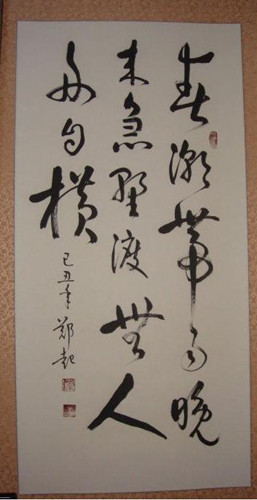 春潮帶雨晚
来急野渡無人
舟自横
己丑年 鄭起